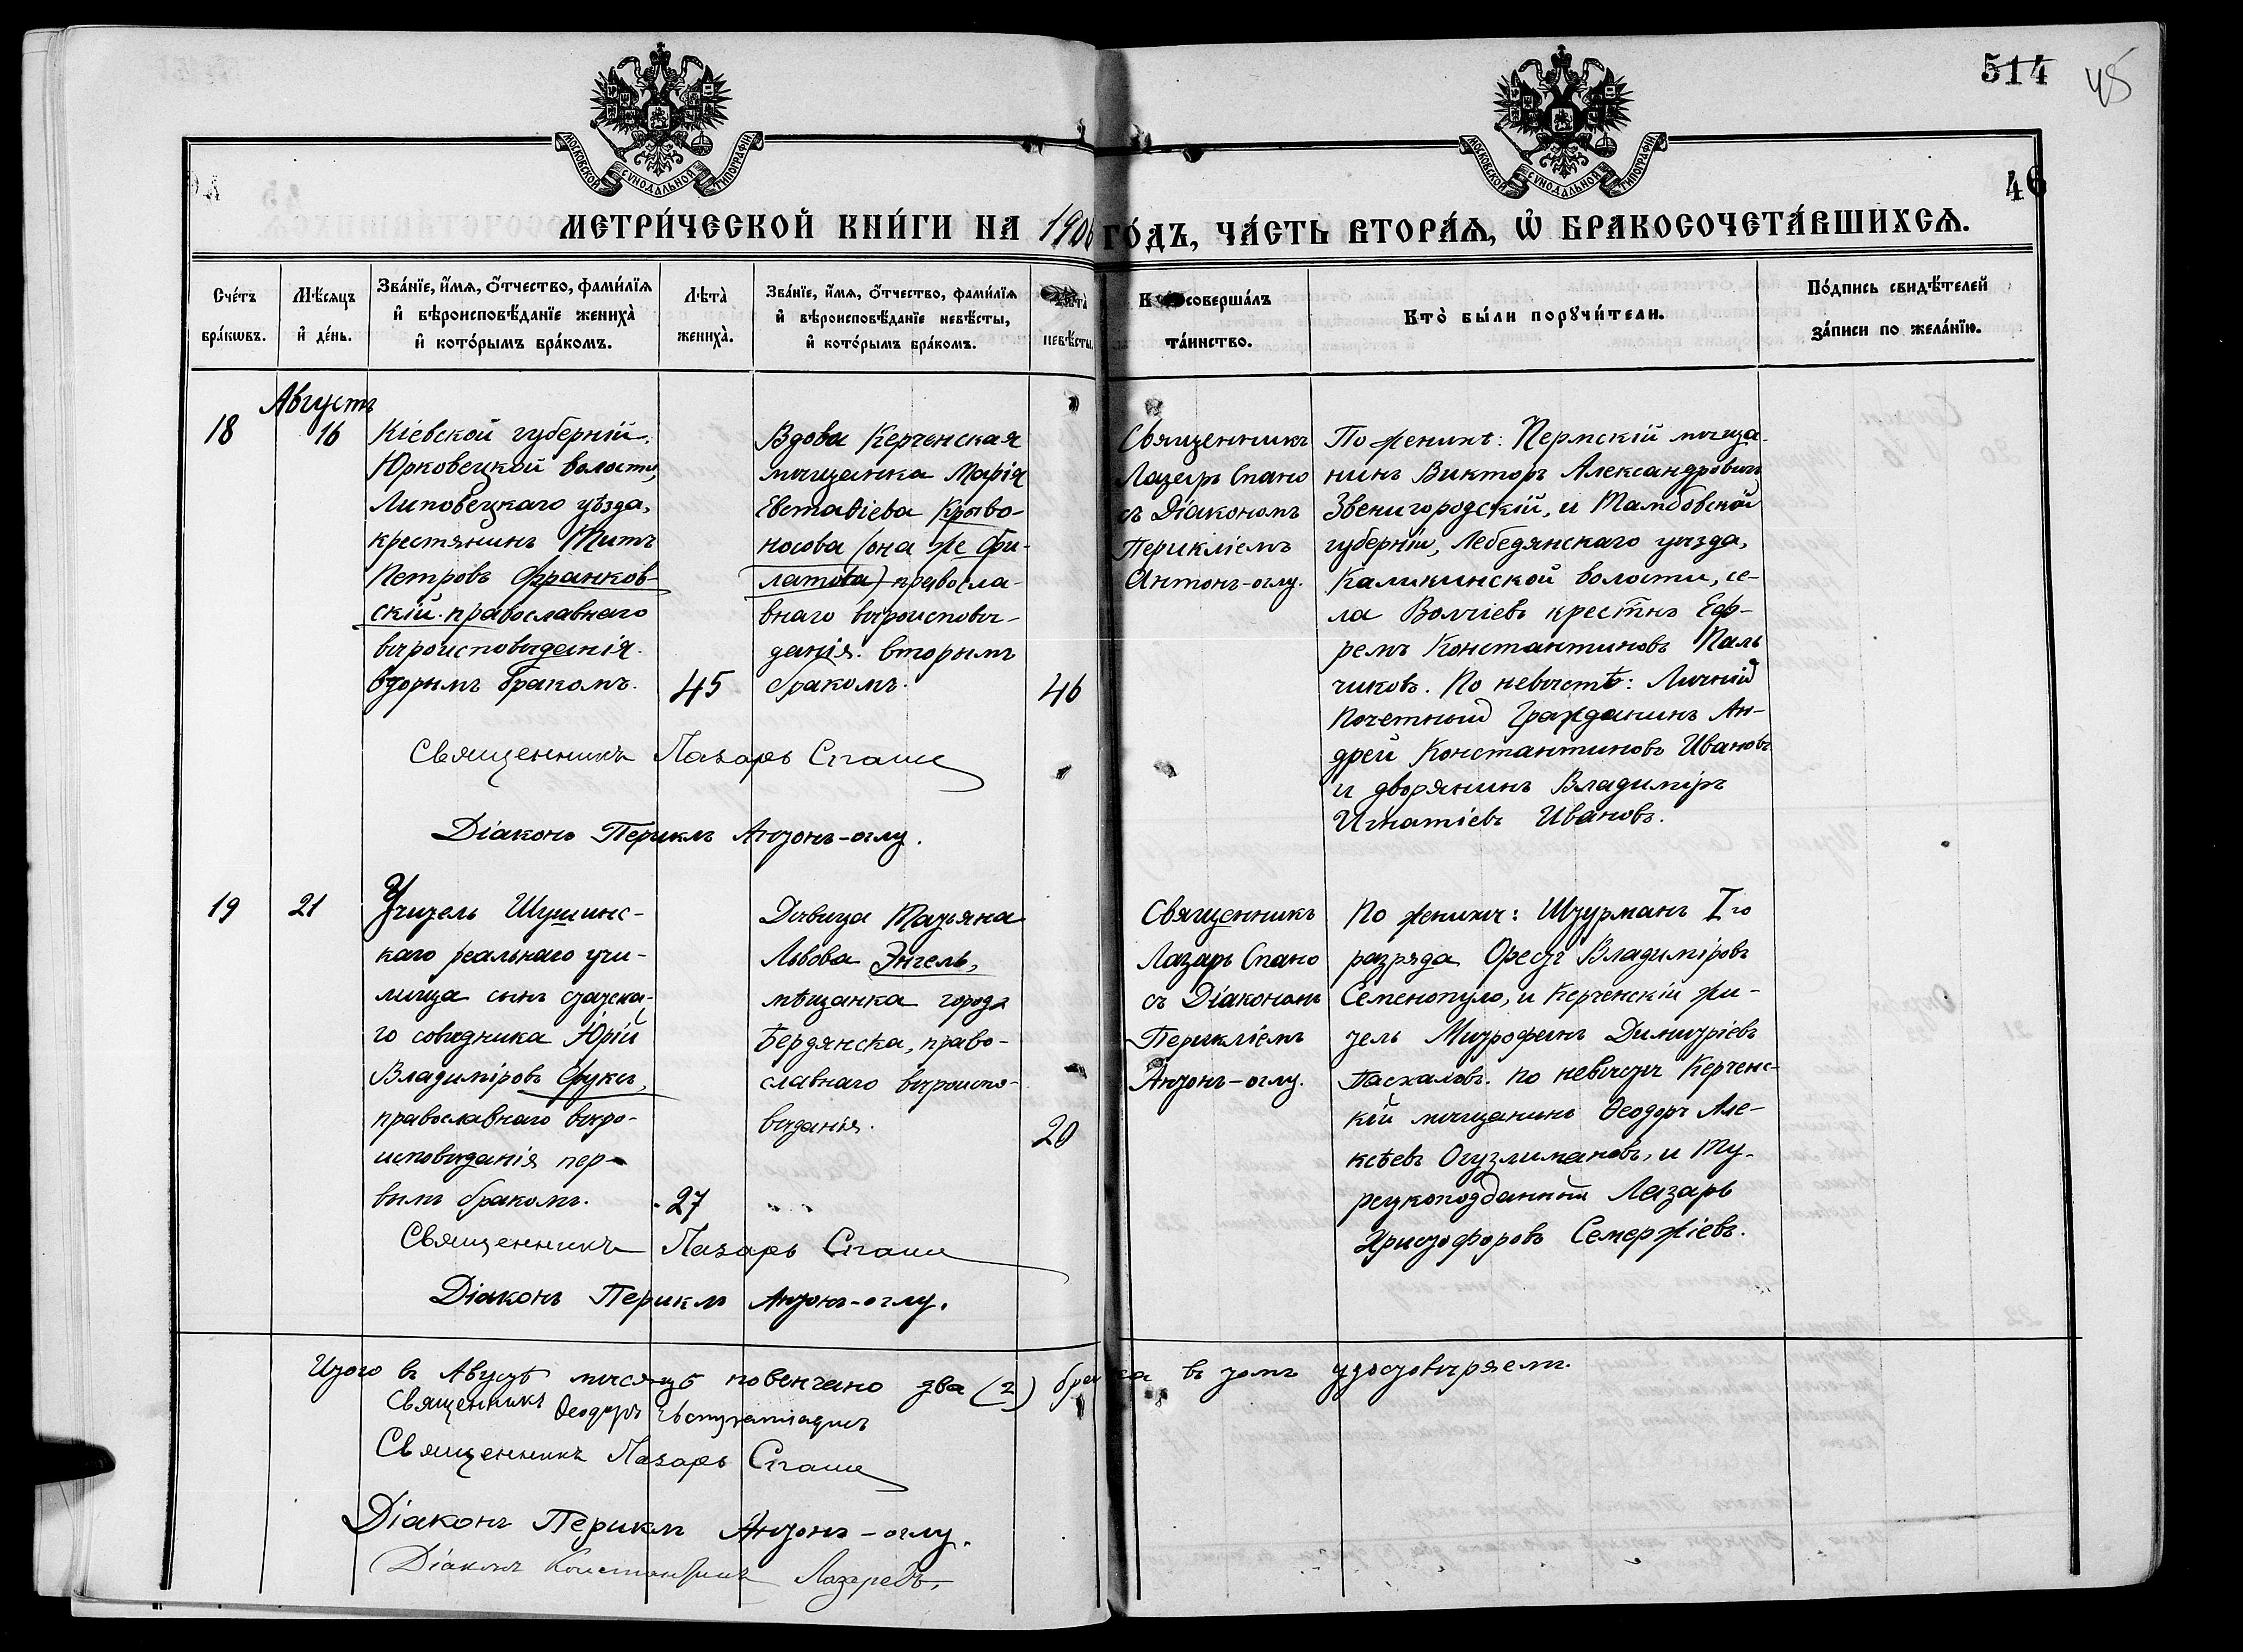 514
45
46
МОСКОВСКОЙ СУНОДАЛЬНОЙ ТИПОГРАФІИ
МОСКОВСКОЙ СУНОДАЛЬНОЙ ТИПОГРАФІИ
МЕТРИ́ЧЕСКОЙ КНИ́ГИ НА 1906 ГО́ДЪ, ЧА́СТЬ ВТОРА́Ѧ, Ѽ БРАКОСОЧЕТА́ВШИХСѦ.
Сче́тъ
бра́кѡвъ.
Мѣ́сяцъ
и҆ де́нь.
Зва́нїе, и҆́мѧ, ѻ҆́тчество, фами́лїѧ
и҆ вѣроисповѣ́данїе жениха̀
и҆ кото́рымъ бра́комъ.
Лѣ́та̀
жениха̀.
Зва́нїе, и҆́мѧ, ѻ҆́тчество, фами́лїѧ
и҆ вѣроисповѣ́данїе невѣ́сты,
и҆ кото́рымъ бра́комъ.
Лѣ́та̀
невѣ́сты.
К соверша́лъ
та́инство.
Кто̀ бы́ли порꙋчи́тели.
По́дпись свидѣ́телей
за́писи по жела́нїю.
Августъ
18
16
Кіевской губерніи,
Юрковецкой волости,
Липовецкаго уѣзда,
крестянинъ Титъ
Петровъ Франков-
скій. православнаго
вѣроисповѣданія.
вторымъ бракомъ.
45
Вдова Керченская
мѣщанка Марія
Евстаѳіева Криво-
носова (она же Фи-
латова) правосла-
внаго вѣроисповѣ-
данія. вторымъ
бракомъ.
46
Священникъ
Лазарь Спано
съ Діакономъ
Перикліемъ
Антонъ-оглу.
По женихѣ: Пермскій мѣща-
нинъ Викторъ Александровичъ
Звенигородскій, и Тамбовской
губерніи, Лебедянскаго уѣзда,
Каликинской волости, се-
ла Волчіевъ крестнъ Еф-
ремъ Константиновъ Паль
чиковъ. По невѣстѣ: Личный
Почетный Гражданинъ Ан-
дрей Константиновъ Ивановъ
и дворянинъ Владиміръ
Игнатіевъ Ивановъ.
Священникъ Лазарь Спано
Діаконъ Периклъ Антонъ-оглу.
19
21
Учитель Шушинс-
каго реальнаго учи-
лища сынъ статска-
го совѣтника Юрій
Владиміровъ Фуксъ,
православнаго вѣро-
исповѣданія пер-
вымъ бракомъ.
27
Дѣвица Татьяна
Львова Энгель,
мѣщанка города
Бердянска, право-
славнаго вѣроиспо-
вѣданія.
20
Священникъ
Лазарь Спано
съ Діакономъ
Перикліемъ
Антонъ-оглу.
По женихѣ: Штурманъ I го
разряда Орестъ Владиміровъ
Семенопуло, и Керченскій жи-
тель Митрофанъ Димитріевъ
Пасхаловъ. по невѣстѣ Керченс-
кій мѣщанинъ Ѳеодоръ Але-
ксѣевъ Огузлимановъ, и Ту-
рецкоподданный Лазарь
Христофоровъ Семержіевъ.
Священникъ Лазарь Спано
Діаконъ Периклъ Антонъ-оглу.
Итого въ Августѣ мѣсяцѣ повенчано два (2) брака въ томъ удостовѣряемъ.
Священникъ Ѳеодоръ Евстратіадисъ
Священникъ Лазарь Спано
Діаконъ Периклъ Антонъ-оглу.
Діаконъ Константинъ Лазаревъ.